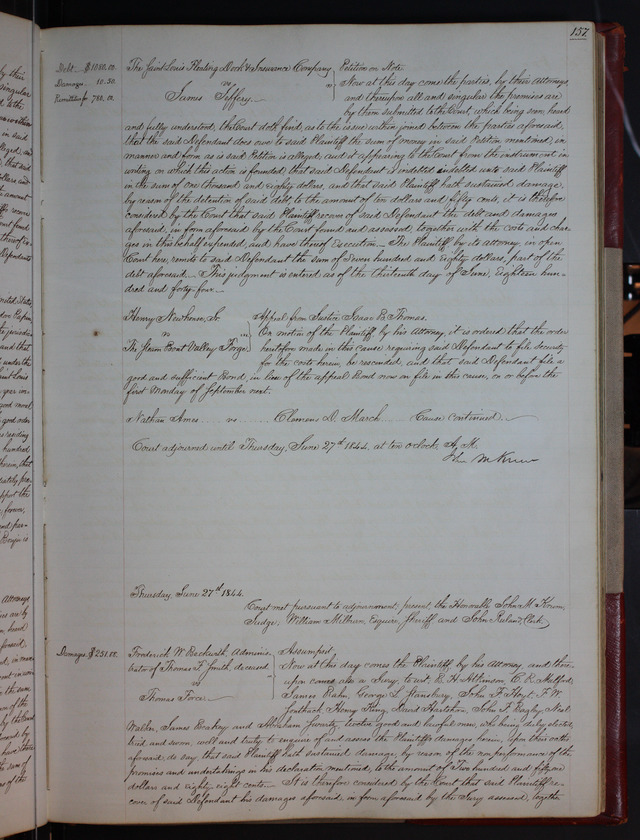 157
Debt $1080.00 The Saint Louis Floating Dock & Insurance Company Petition on Note
Damages 10.50 vs Now at this day come the parties, by their Attorneys
Remittitur for 780.00 James Tiffery and thereupon all and singular the premises are
by them submitted to the Court, which being seen, heard
and fully understood, the Court doth find, as to the issue within joined between the parties aforesaid,
that the said Defendant does owe to said Plaintiff the sum of money in said Petition mentioned, in
manner and form as is said Petition is alleged, and it appearing to the Court from the instrument in
writing on which this action is founded, that said Defendant is indebted indebted unto said Plaintiff
in the sum of one thousand and eighty dollars, and that said Plaintiff hath sustained damage,
by reason of the detention of said debt, to the amount of ten dollars and fifty cents, it is therefore
considered by the Court that said Plaintiff recover of said Defendant the debt and damages
aforesaid, in form aforesaid by the Court found and assessed, together with the costs and char-
ges in this behalf expended, and have thereof Execution. The Plaintiff by its attorney, in open
Court here, remits to said Defendant the sum of Seven hundred and Eighty dollars, part of the
debt aforesaid. This judgment is entered as of the thirteenth day of June, Eighteen hun-
dred and forty four.
Henry Newhouse, Sr. Appeal from Justice Isaac B. Thomas.
vs On motion of the Plaintiff by his Attorney, it is ordered that the order
The Steam Boat Valley Forge heretofore made in this cause requiring said Defendant to file security
for the costs herein, be rescinded, and that said Defendant file a
good and sufficient Bond, in lieu of the appeal Bond now on file in this cause, on or before the
first Monday of September next.
Nathan Ames vs Clemens D. March Cause continued.
Court adjourned until Thursday, June 27th 1844, at ten o'clock, A. M.
John M Krum
Thursday June 27th 1844.
Court met pursuant to adjournment, present, the Honorable John M. Krum,
Judge, William Milburn Esquire, Sheriff and John Ruland, Clerk.
Damages $251.88. Frederick W. Beckwith Adminis- Assumpsit.
trator of Thomas F. Smith, deceased Now at this day comes the Plaintiff by his Attorney, and there-
vs upon comes also a Jury, to wit, R. H. Atkinson,
Thomas Force James George L. Stansbury, John F. Hoyt, F. W.
Henry King, David John F. Neal
James and Abraham twelve good and lawful men, who being duly elected,
tried and sworn, well and truly to enquire of and assess the Plaintiff's damages herein, upon their oaths
aforesaid, do say, that said Plaintiff hath sustained damage, by reason of the nonperformance of the
promises and undertakings in his declaration mentioned, to the amount of Two hundred and fifty one
dollars and eighty eight cents. It is therefore considered by the Court that said Plaintiff re-
cover of said Defendant his damages aforesaid, in form aforesaid by the Jury assessed, together